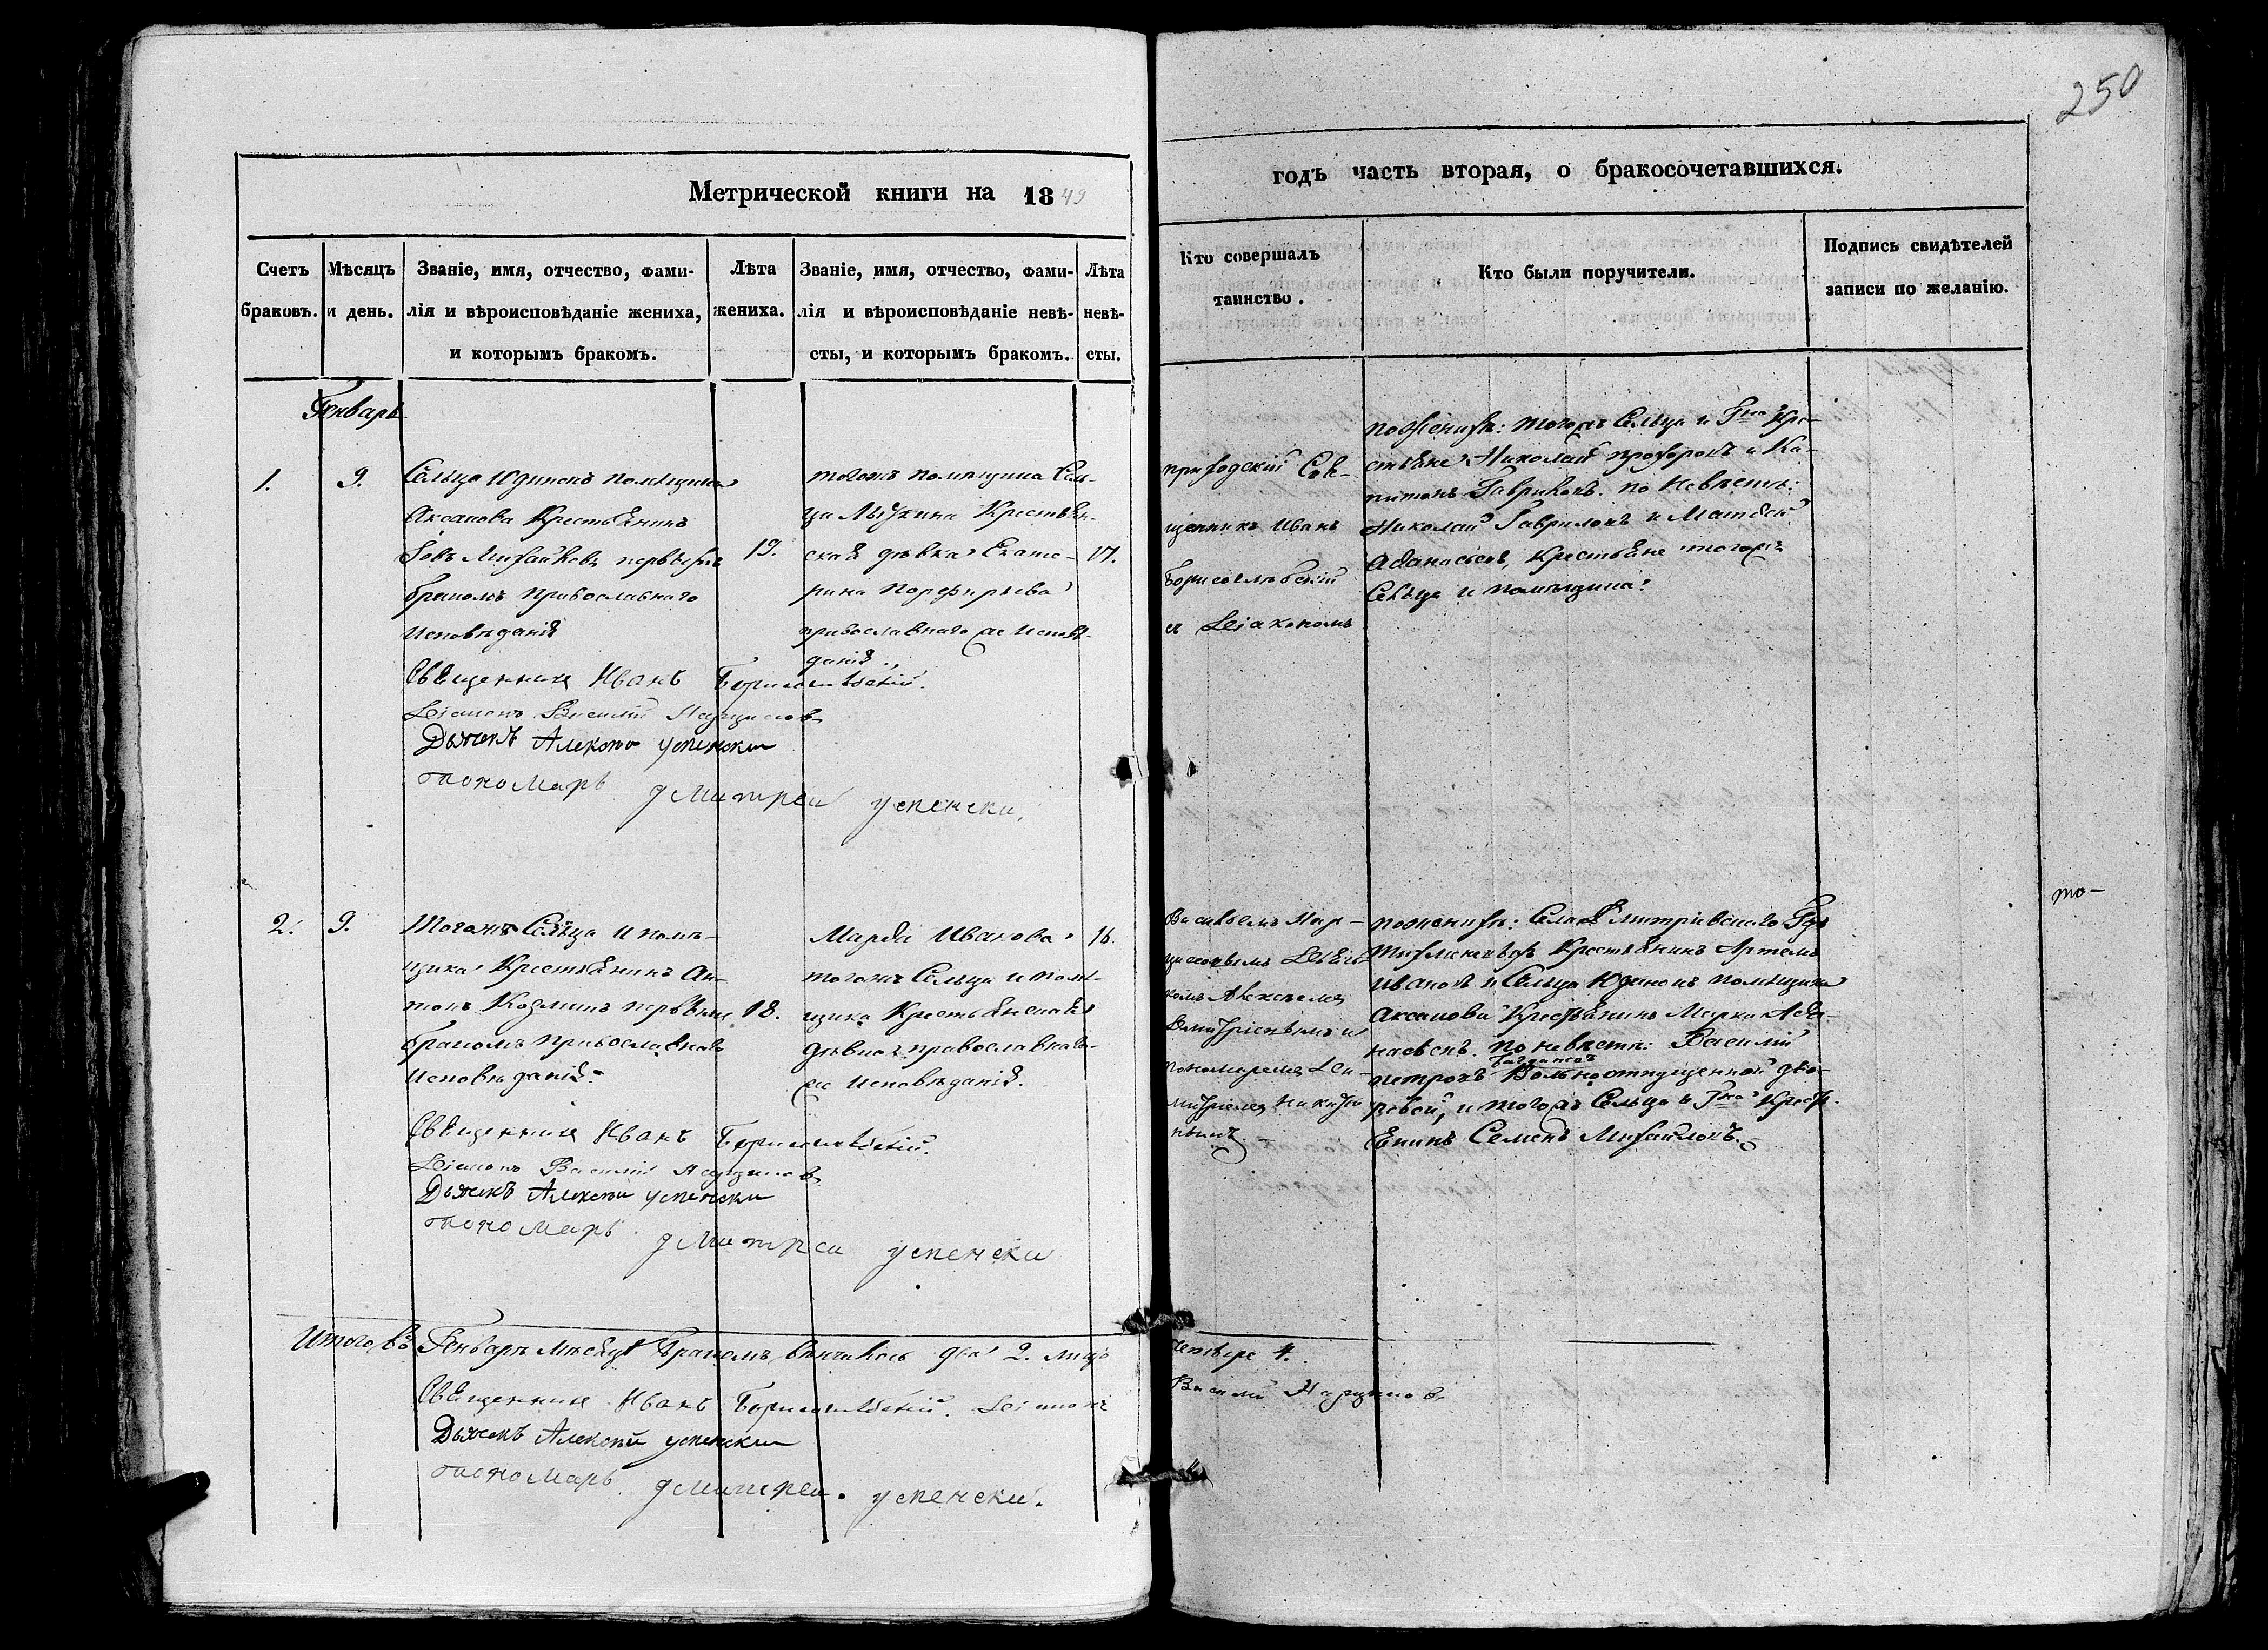 250
Метрической книги на 1849
годъ часть вторая, о бракосочетавшихся.
Счетъ браковъ.
Мѣсяцъ и день.
Званіе, имя, отчество, фами-
лія и вѣроисповѣданіе жениха,
и которымъ бракомъ.
Лѣта
жениха.
Званіе, имя, отчество, фами-
лія и вѣроисповѣданіе невѣ-
сты, и которымъ бракомъ.
Лѣта
невѣ-
сты.
Кто совершалъ
таинство.
Кто были поручители.
Подпись свидѣтелей
записи по желанію.
Генварь
1.
9.
Сельца Юдинокъ помѣщика
Аксакова Крестьянинъ
Іовъ Михайловъ первымъ
бракомъ православнаго
исповѣданія
19.
тогожъ помѣщика Сель-
ца Крестьян-
ская дѣвка Екате-
рина Порфирьева
православнаго же исповѣ-
данія.
17.
приходскій Свя-
щенникъ Иванъ
Борисоглѣбскій
съ Діакономъ
по женихѣ: тогожъ Сельца и Гна Кре-
стьяне Николай Прохоровъ и Ка-
питонъ Гавриловъ. по невѣстѣ:
Николай Гавриловъ и Матвей
Афанасьевъ, крестьяне тогожъ
Сельца и помѣщика.
Священникъ Иванъ Борисоглѣбскій.
Діаконъ Василій Нарцисовъ
Дьячекъ Алексѣй успенски
пономарь дмитреи успенски.
2.
9.
Тогожъ Сельца и помѣ-
щика Крестьянинъ Ан-
тонъ Козминъ первымъ
бракомъ православнаго
исповѣданія.
18.
Марфа Иванова
тогожъ Сельца и помѣ-
щика Крестьянская
дѣвка православнаго
же исповѣданія.
16.
Васильемъ Нар-
цисовымъ Дьяч-
комъ Алексѣемъ
Дмитріевымъ и
пономаремъ Ди-
митріемъ Ники-
нымъ.
по женихѣ: Села Дмитріевскаго
то-
Крестьянинъ Артемъ
Ивановъ и Сельца Юдинокъ помѣщика
Аксакова Крестьянинъ Марки Афа-
насьевъ. по невѣстѣ: Василій
Петровъ Вольноотпущенной дво-
ровой, и тогожъ Сельца и Гна Крестья-
янинъ Семенъ Михайловъ.
Священникъ Иванъ Борисоглѣбскій.
Діаконъ Василій Нарцисовъ
Дьячекъ Алексѣи успенски
пономарь дмитреи успенски
Итого въ Генварѣ мѣсяцѣ бракомъ вѣнчалось два 2. лицъ
четыре 4.
Священникъ Иванъ Борисоглѣбскій. Діаконъ
Василій Нарцисовъ
Дьячекъ Алексѣй успенски
пономарь дмитреи успенски.